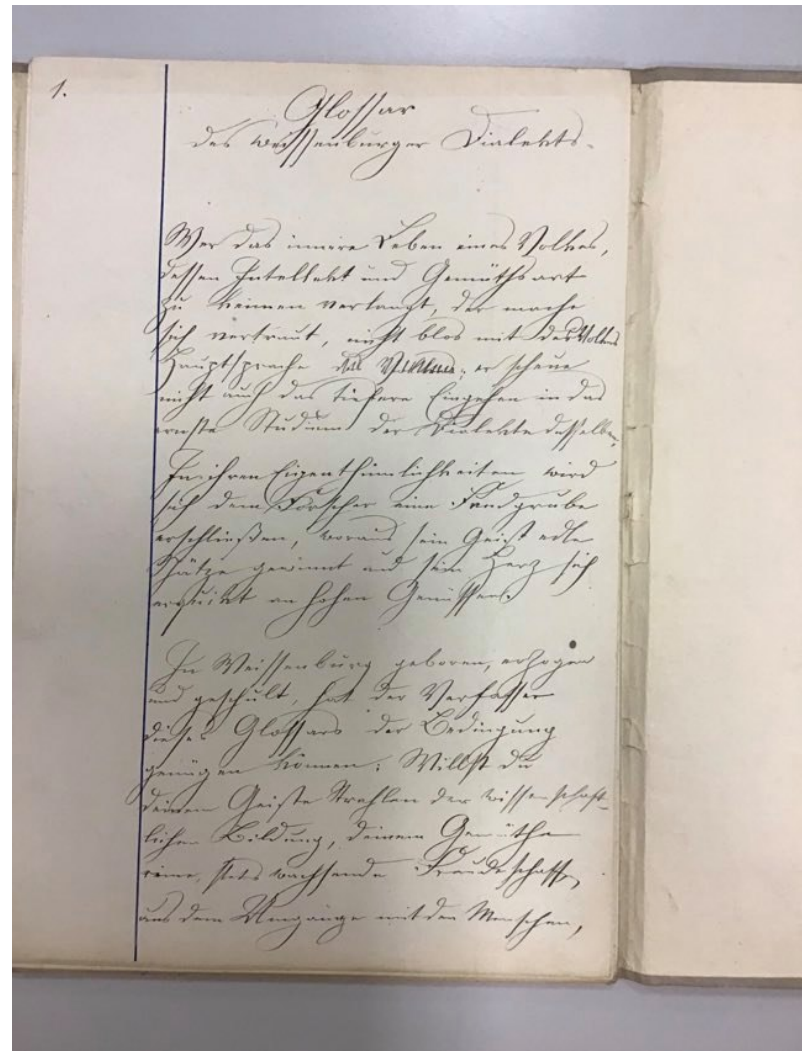 1.
Glossar
des Weissenburger Dialekts.
Wer das innere Leben eines Volkes,
dessen Intellekt und Gemüthsart
zu kennen verlangt, der mache
sich vertraut, nicht blos mit des Volkes
Hauptsprache er scheue
nicht auch das tiefere Eingehen in das
ernste Studium der Dialekte desselben.
In ihren Eigenthümlichkeiten wird
sich dem Forscher eine Fundgrube
erschließen, woraus sein Geist edle
Schätze gewinnt und sein Herz sich
erquickt an hohen Genüssen.
In Weissenburg geboren, erzogen
und geschult, hat der Verfasser
dieses Glossars der Bedingung
genügen können: Willst du
deinem Geiste Strahlen der wissenschaft-
lichen Bildung, deinem Gemüthe
reine, stets wachsende Freude schaffen
aus dem Umgange mit den Menschen,